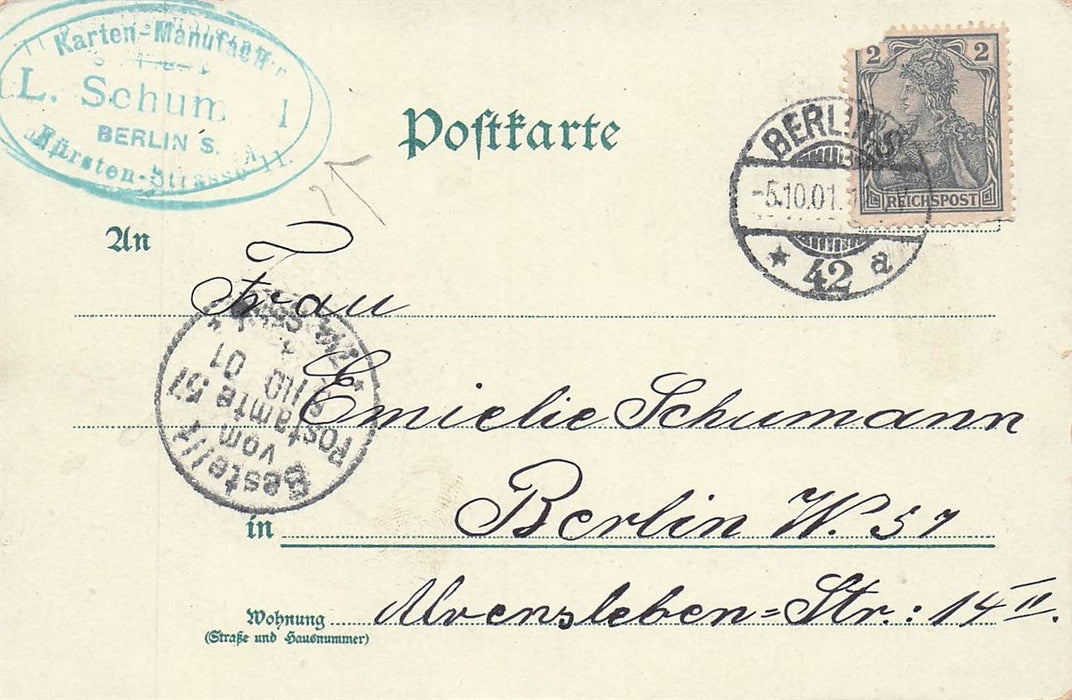 Karten-Manufact
L. Schum
BERLIN S.
Fürsten-Strasse 11.
Postkarte
2 2
REICHSPOST
BERLIN S
-5.10.01.
* 42 a
An
Frau
Emielie Schumann
in Berlin W. 57
Wohnung Alvensleben=Str: 14 II.
(Straße und Hausnummer)
Bestellt
vom
Postamte 57
10 01